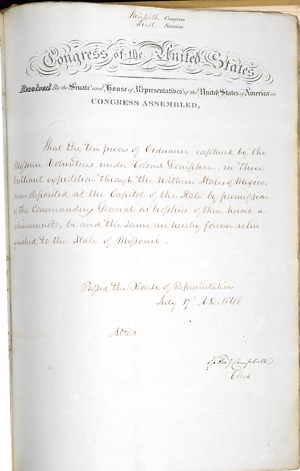 Thirtieth Congress
First Session
Congress of the United States
Resolved By the Senate and House of Representatives of the United States of America in
CONGRESS ASSEMBLED,
That the ten pieces of Ordnance captured by the
Missouri Volunteers under Colonel Doniphan, in their
brilliant expedition through the Northern States of Mexico,
now deposited at the Capitol of the State by permission
of the Commanding General as trophies of their heroic a
chievements, be and the same are hereby forever relin
quished to the State of Missouri.
Passed the House of Representatives
July 17 A.D. 1848
Attest
Campbell
Clerk